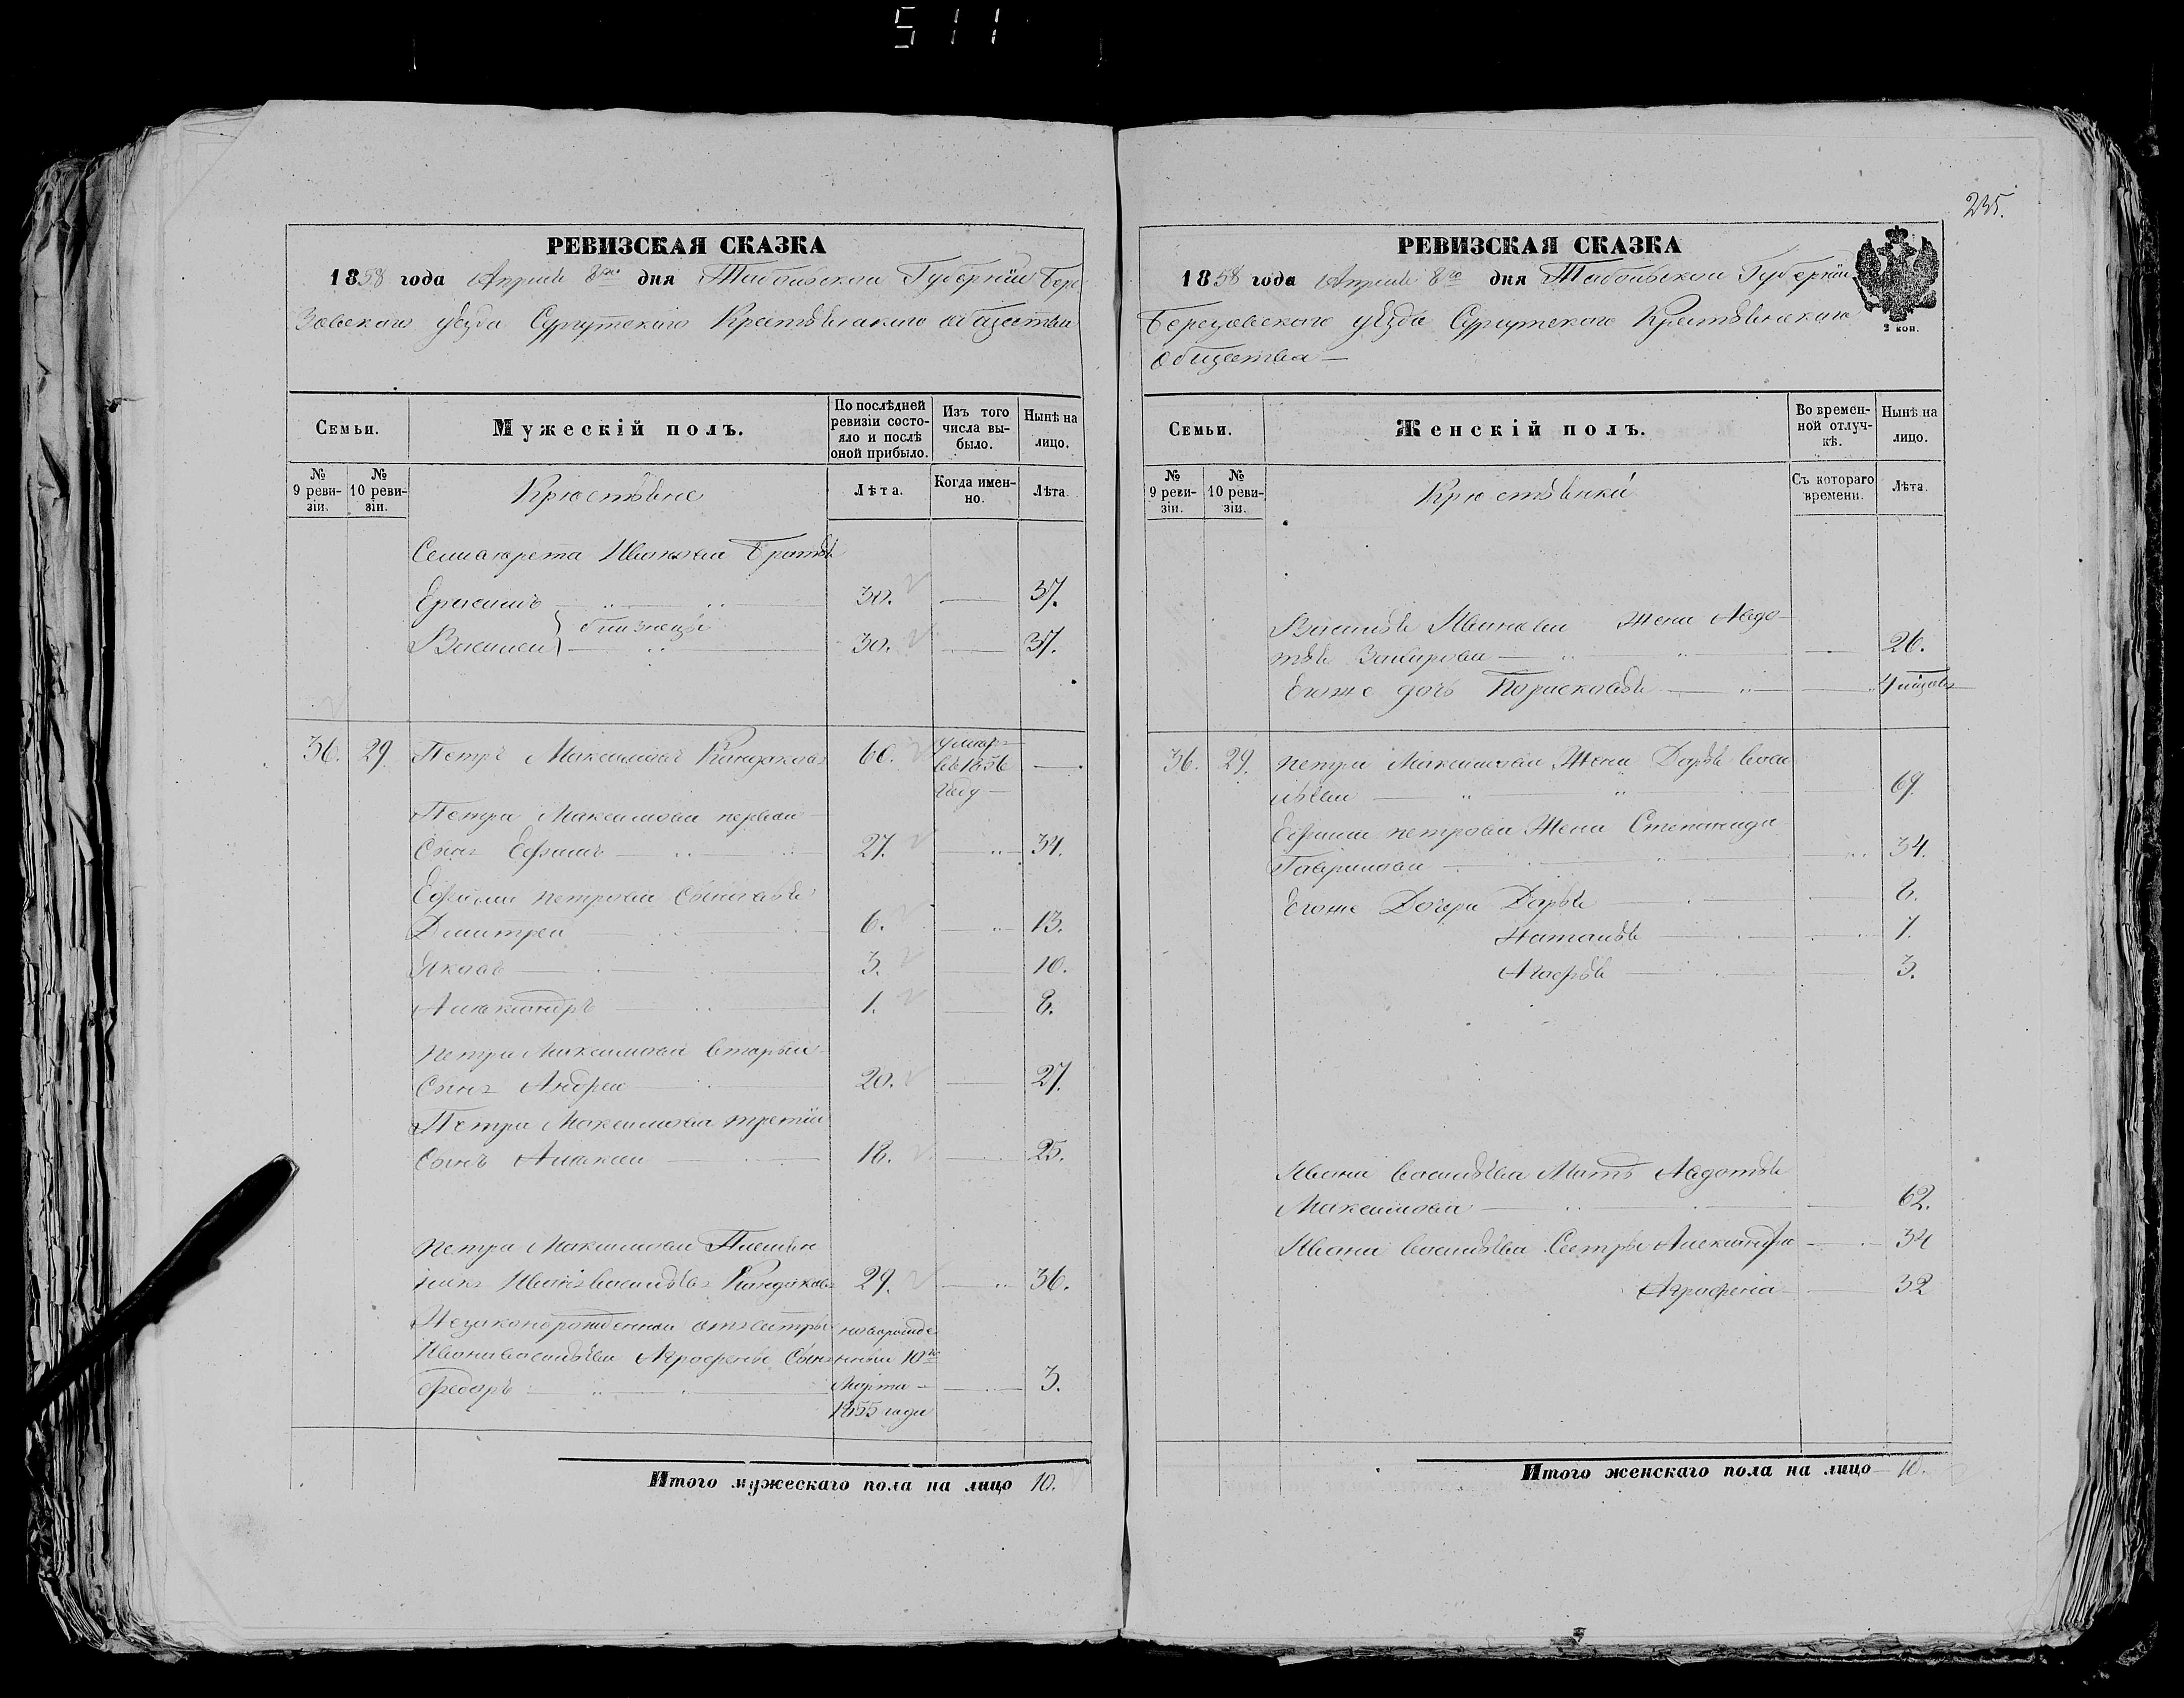 511
РЕВИЗСКАЯ СКАЗКА
1858 года Апреля 8го дня Тобольской Губернии Бере
зовского уезда Сургутского Крестьянского общества
Семьи.
Мужескій полъ.
По послѣдней ревизіи состо-
яло и послѣ оной прибыло.
Изъ того числа вы-
было.
Нынѣ на лицо.
№ 9 реви-
зіи.
№ 10 реви-
зіи.
Крестьяне
Лѣта.
Когда имен-
но.
Лѣта.
Ивановы Братья
Ерасимъ 30. 37.
близнецы
Василей 30. 37.
36. 29 Петръ Максимовъ Кондаковъ 60. умеръ
въ 1856
году
Петра Максимова первой
Сынъ Ефимъ 27. 34.
Ефима Петрова Сыновья
Дмитрей 6. 13.
Яковъ 3. 10.
Александръ 1. 8.
Петра Максимова вторый
Сынъ Андрей 20. 27.
Петра Максимова третий
Сынъ Алексей 18. 25.
Петра Максимова Племян
никъ Иванъ Васильевъ Кондаковъ 29. 36.
Незаконорожденной отъ сестры новорожде
Ивана Васильева Агрофены Сынъ нный 10го
Федоръ Марта 3.
1855 года
Итого мужескаго пола на лицо 10.
235.
РЕВИЗСКАЯ СКАЗКА
1858 года Апреля 8го дня Тобольской Губернии
2 коп.
Березовского уезда Сургутского Крестьянского
общества
Семьи.
Женскій полъ.
Во времен-
ной отлуч-
кѣ.
Нынѣ на лицо.
№ 9 реви-
зіи.
№ 10 реви-
зіи.
Крестьянки
Съ котораго времени.
Лѣта.
Василья Иванова Жена Авдо-
тья Захарова 26.
Егоже дочь Порасковья 4 месяца
36. 29. Петра Максимова Жена Дарья Васи
льева 69.
Ефима Петрова Жена Степанида
Гаврилова 34.
Егоже Дочери Дарья 8.
Наталья 7.
Агафья 3.
Ивана Васильева Мать Авдотья
Максимова 62.
Ивана Васильева Сестры Александра 34
Агрофена 32
Итого женскаго пола на лицо 10.